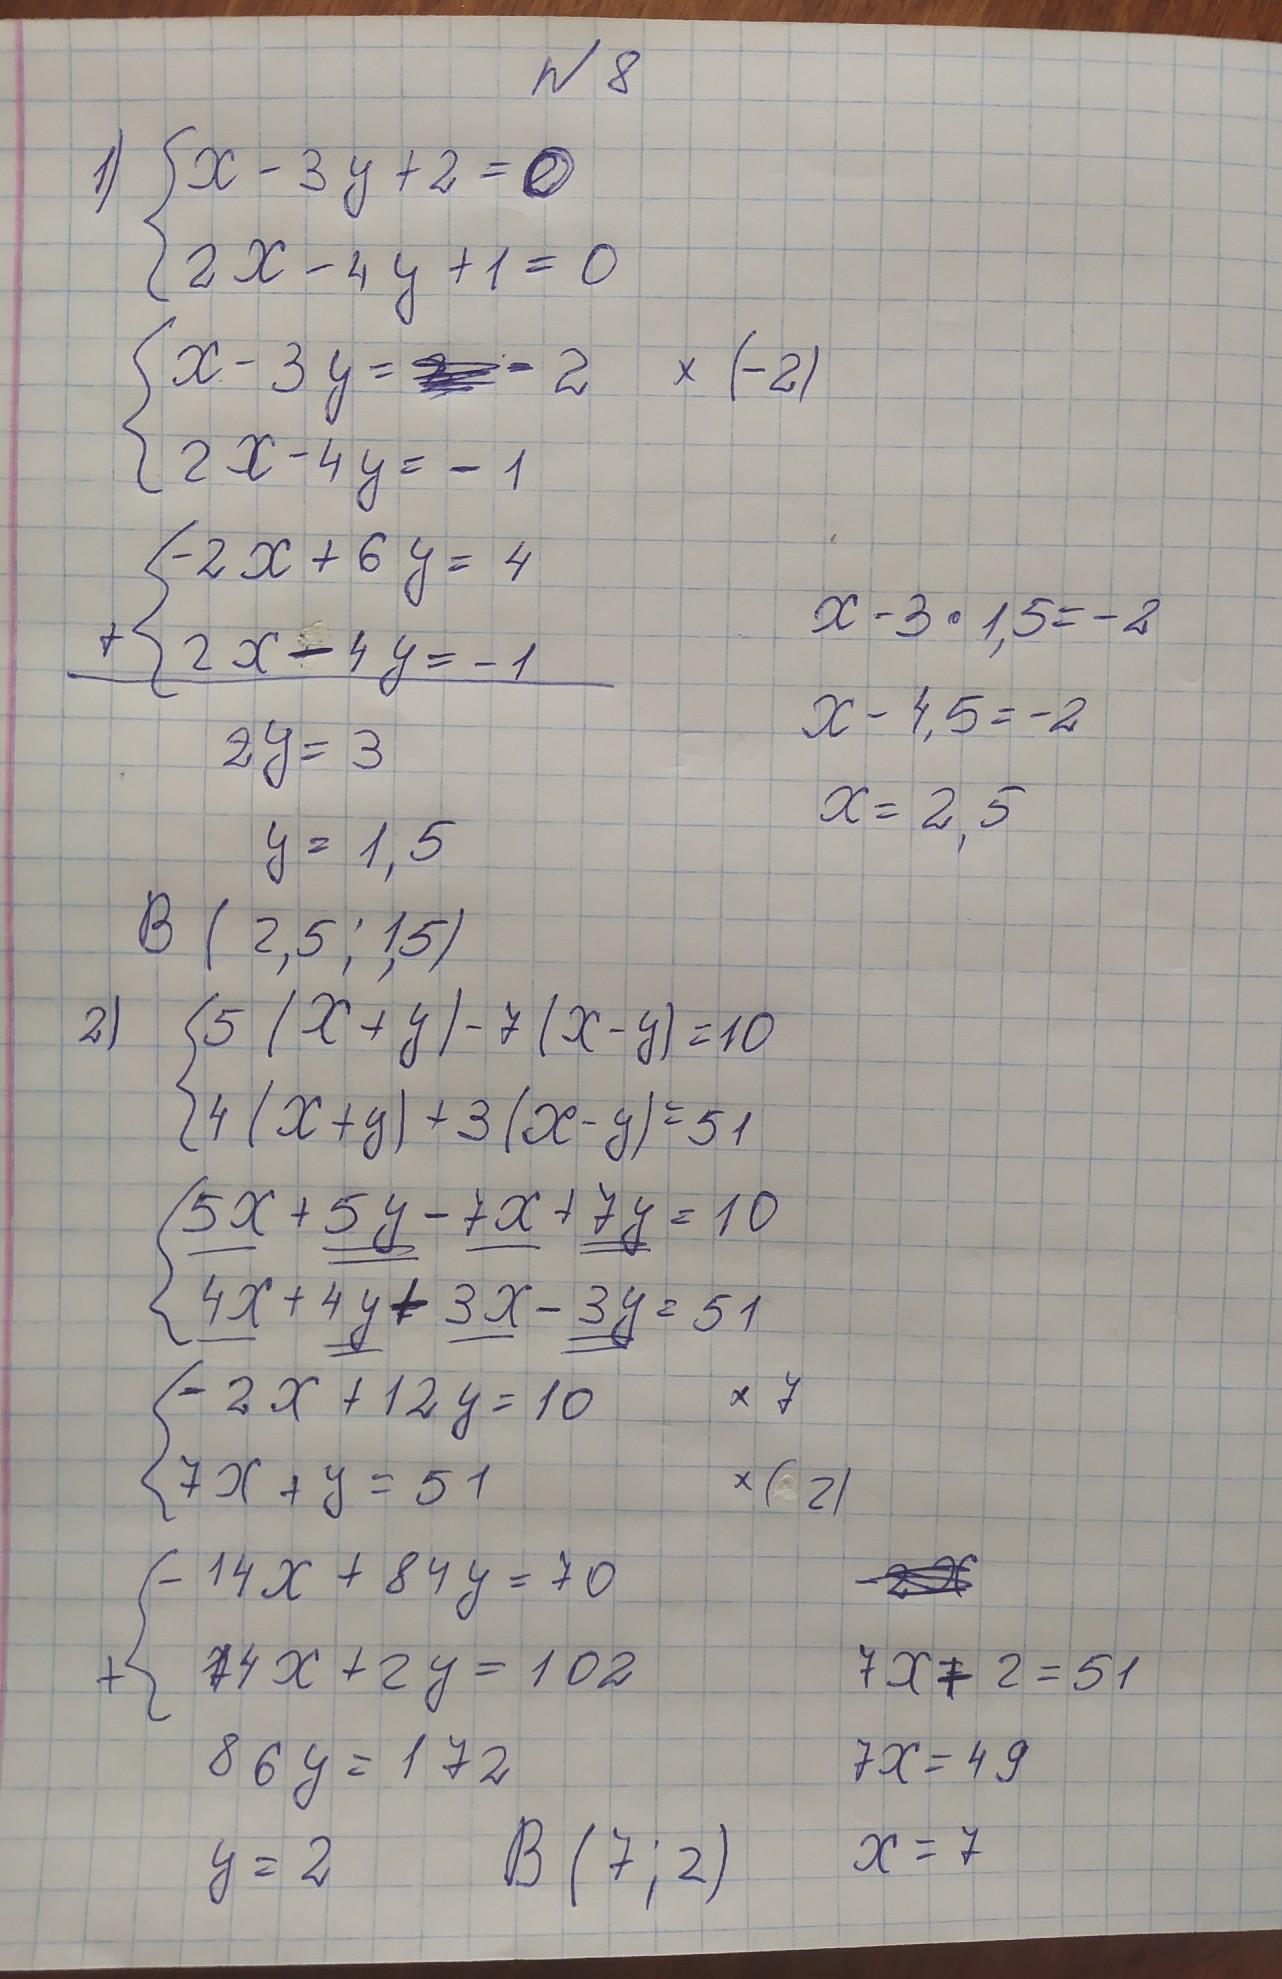 №8
1) { x - 3y + 2 = 0
2x - 4y + 1 = 0
{ x - 3y = - 2 × (-2)
2x - 4y = - 1
{ -2x + 6y = 4
+ 2x - 4y = - 1
2y = 3
y = 1,5
x - 3 • 1,5 = -2
x - 4,5 = -2
x = 2,5
В (2,5; 1,5)
2) { 5(x+y) - 7(x-y) = 10
4(x+y) + 3(x-y) = 51
{ 5x + 5y - 7x + 7y = 10
4x + 4y + 3x - 3y = 51
{ - 2x + 12y = 10 × 7
7x + y = 51 × ( 2)
{ - 14x + 84y = 70
+ 14x + 2y = 102
86y = 172
y = 2
7x + 2 = 51
7x = 49
x = 7
В (7; 2)